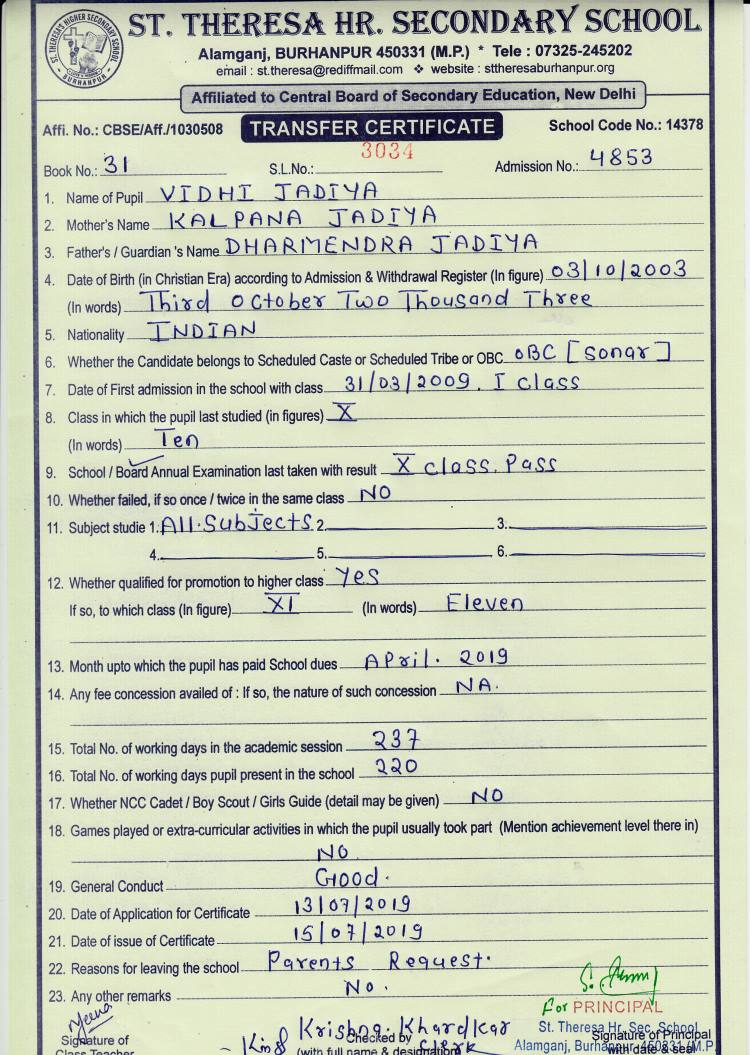 ST. THERESA'S HIGHER SECONDARY SCHOOL
BURHANPUR
ST. THERESA HR. SECONDARY SCHOOL
Alamganj, BURHANPUR 450331 (M.P.) * Tele : 07325-245202
email : st.theresa@rediffmail.com ❖ website : sttheresaburhanpur.org
Affiliated to Central Board of Secondary Education, New Delhi
Affi. No.: CBSE/Aff./1030508 TRANSFER CERTIFICATE School Code No.: 14378
Book No.: 31 S.L.No.: 3034 Admission No.: 4853
1. Name of Pupil VIDHI JADIYA
2. Mother's Name KALPANA JADIYA
3. Father's / Guardian 's Name DHARMENDRA JADIYA
4. Date of Birth (in Christian Era) according to Admission & Withdrawal Register (In figure) 03/10/2003
(In words) Third October Two Thousand Three
5. Nationality INDIAN
6. Whether the Candidate belongs to Scheduled Caste or Scheduled Tribe or OBC OBC [Sonar]
7. Date of First admission in the school with class 31/03/2009. I class
8. Class in which the pupil last studied (in figures) X
(In words) Ten
9. School / Board Annual Examination last taken with result X class. Pass
10. Whether failed, if so once / twice in the same class NO
11. Subject studie 1. All. Subjects 2. 3.
4. 5. 6.
12. Whether qualified for promotion to higher class Yes
If so, to which class (In figure) XI (In words) Eleven
13. Month upto which the pupil has paid School dues April. 2019
14. Any fee concession availed of : If so, the nature of such concession NA.
15. Total No. of working days in the academic session 237
16. Total No. of working days pupil present in the school 220
17. Whether NCC Cadet / Boy Scout / Girls Guide (detail may be given) NO
18. Games played or extra-curricular activities in which the pupil usually took part (Mention achievement level there in)
NO
19. General Conduct Good.
20. Date of Application for Certificate 13/07/2019
21. Date of issue of Certificate 15/07/2019
22. Reasons for leaving the school Parents Request.
23. Any other remarks No.
For PRINCIPAL
Meena Krishna. Khardkar St. Theresa Hr. Sec. School
Signature of Checked by Signature of Principal
Class Teacher (with full name & designation) Clerk Alamganj, Burhanpur 450331 (M.P.
with date & seal